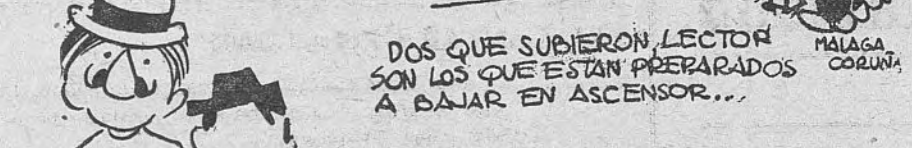 DOS QUE SUBIERON, LECTOR
SON LOS QUE ESTAN PREPARADOS
A BAJAR EN ASCENSOR...
MALAGA_
CORUÑA